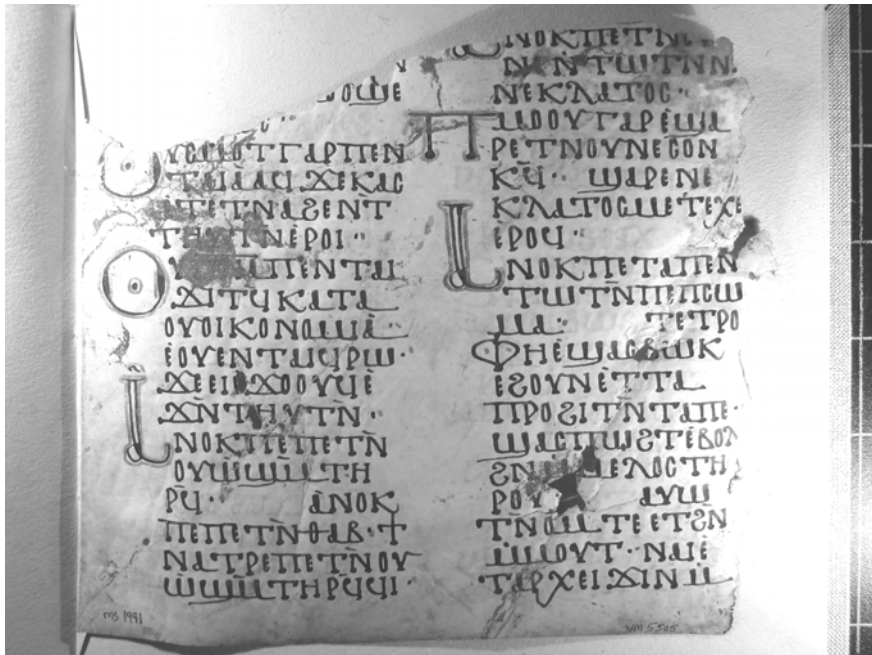 ⲟⲩⲥⲙⲟⲧⲅⲁⲣⲡⲉⲛ
ⲧⲁⲓⲁⲁϥ·ϫⲉⲕⲁⲥ
ⲉⲧⲉⲧⲛⲁϩⲉⲛⲧ
ⲧⲏⲩⲧⲛⲉ̀ⲣⲟⲓ··
ⲡⲉⲛⲧⲁⲓ
ϫⲓⲧϥⲕⲁⲧⲁ
ⲟⲩⲟⲓⲕⲟⲛⲟⲙⲓⲁ··
ⲉ̀ⲟⲩⲉⲛⲧⲁϥⲣϣ·
ϫⲉⲉⲓⲉϫⲟⲟⲩϥⲉ̀
ϫⲛ̀ⲧⲏⲩⲧⲛ̀··
ⲁⲛⲟⲕⲡⲉⲡⲉⲧⲛ̀
ⲟⲩⲱϣⲙ̀ⲧⲏ
ⲣϥ·· ⲁ̀ⲛⲟⲕ
ⲡⲉⲡⲉⲧⲛ̀ⲑⲁⲃ·ϯ
ⲛⲁⲧⲣⲉⲡⲉⲧⲛ̀ⲟⲩ
ⲱ̀ϣⲙ̀ⲧⲏⲣϥϥⲓ·
ⲁⲛⲟⲕⲡⲉⲧⲛ
ⲛⲧⲱⲧⲛⲛ
ⲛⲉⲕⲗⲁⲧⲟⲥ··
ⲡⲙⲟⲟⲩⲅⲁⲣⲉ̀ϣⲁ
ⲣⲉⲧⲛⲟⲩⲛⲉⲥⲟⲛ
ⲕϥ·· ϣⲁⲣⲉⲛⲉ
ⲕⲗⲁⲧⲟⲥⲙⲉⲧⲉϫⲉ
ⲉ̀ⲣⲟϥ··
ⲁⲛⲟⲕⲡⲉⲧⲁⲡⲉⲛ
ⲧⲱⲧⲛ̀ⲡⲉⲡⲥⲱ
ⲙⲁ·· ⲧⲉⲧⲣⲟ
ⲫⲏⲉ̀ϣⲁⲥⲃⲱⲕ
ⲉϩⲟⲩⲛⲉ̀ⲧⲧⲁ
ⲡⲣⲟϩⲓⲧⲛ̀ⲧⲁⲡⲉ·
ϣⲁⲥⲡⲱϩⲧⲉ̀ⲃⲟⲗ
ϩⲛⲙⲙⲉⲗⲟⲥⲧⲏ
ⲣⲟⲩ ⲁⲩⲱ
ⲧⲛ̀ⲟⲙⲧⲉⲉⲧϩⲛ̀
ⲙ̀ⲙⲟⲩⲧ··ⲛⲙⲉ̀
ⲧⲁⲣⲭⲉⲓϫⲓⲛⲙ̀
ms 1991
VM 5505